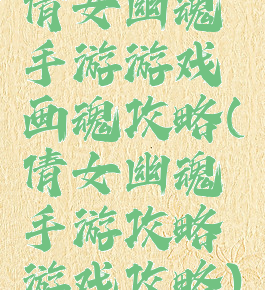 倩女幽魂
手游游戏
画魂攻略(
倩女幽魂
手游攻略
游戏攻略)